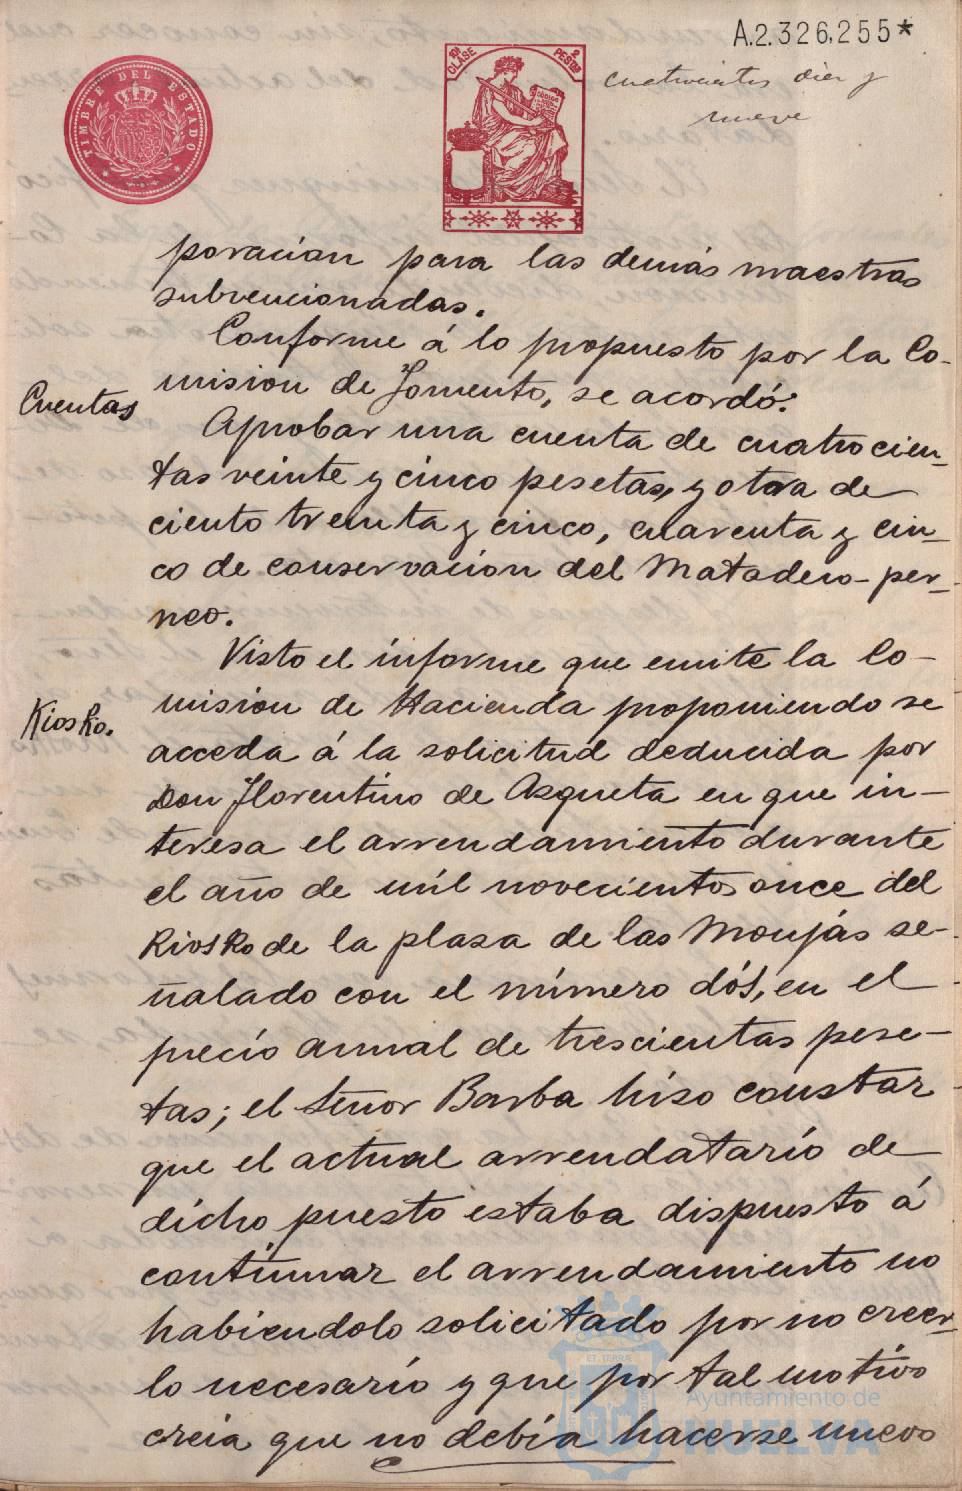 A.2.326,255*
TIMBRE DEL ESTADO
10ª CLASE
2 PESETAS
CODIGO
cuatrocientos diez y
nueve
poracion para las demás maestras
subvencionadas.
Conforme á lo propuesto por la Co-
mision de Fomento, se acordó:
Cuentas
Aprobar una cuenta de cuatrocien-
tas veinte y cinco pesetas, y otra de
ciento treinta y cinco, cuarenta y cin-
co de conservacion del Matadero-per-
neo.
Visto el informe que emite la Co-
Kiosko.
mision de Hacienda proponiendo se
acceda á la solicitud deducida por
Don Florentino de Azqueta en que in-
teresa el arrendamiento durante
el año de mil novecientos once del
Kiosko de la plaza de las Monjás se-
ñalado con el número dós, en el
precio anual de trescientas pese-
tas; el Señor Barba hizo constar
que el actual arrendatario de
dicho puesto estaba dispuesto á
continuar el arrendamiento no
habiendolo solicitado por no creer-
lo necesario y que por tal motivo
creia que no debia hacerse nuevo
Ayuntamiento de
HUELVA